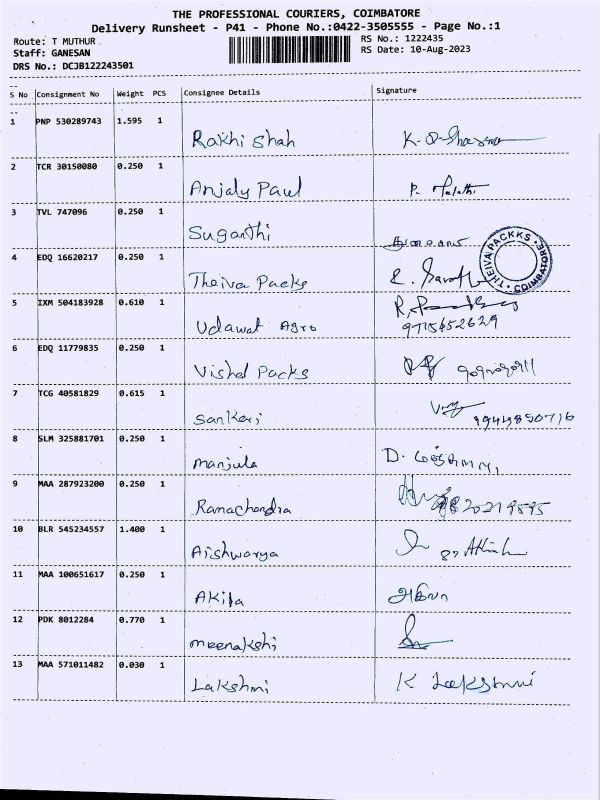 THE PROFESSIONAL COURIERS, COIMBATORE
Delivery Runsheet - P41 - Phone No.:0422-3505555 - Page No.:1
Route: T MUTHUR RS No.: 1222435
Staff: GANESAN RS Date: 10-Aug-2023
DRS No.: DCJB122243501
S No Consignment No Weight PCS Consignee Details Signature
1 PNP 530289743 1.595 1 Rakhi Shah
2 TCR 30150080 0.250 1 Anjaly Paul P. Malathi
3 TVL 747096 0.250 1 Suganthi
4 EDQ 16620217 0.250 1 Theiva Packs THEIVA PACKKS COIMBATORE
5 IXM 504183928 0.610 1 Udawat Agro
6 EDQ 11779835 0.250 1 Vishal Packs
7 TCG 40581829 0.615 1 Sankari
8 SLM 325881701 0.250 1 Manjula D.
9 MAA 287923200 0.250 1 Ramachandra
10 BLR 545234557 1.400 1 Aishwarya
11 MAA 100651617 0.250 1 Akila அகிலா
12 PDK 8012284 0.770 1 Meenakshi
13 MAA 571011482 0.030 1 Lakshmi K